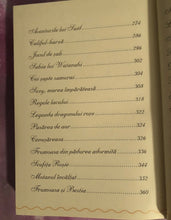 Aventurile lui Said ..... 274
Califul-barză ..... 286
Jocul de șah ..... 296
Sabia lui Watanabi ..... 298
Cei șapte samurai ..... 302
Suzy, marea împărăteasă ..... 304
Regele lacului ..... 308
Legenda dragonului roșu ..... 312
Pasărea de aur ..... 324
Cenușăreasa ..... 332
Frumoasa din pădurea adormită ..... 336
Scufița Roșie ..... 344
Motanul încălțat ..... 352
Frumoasa și Bestia ..... 360